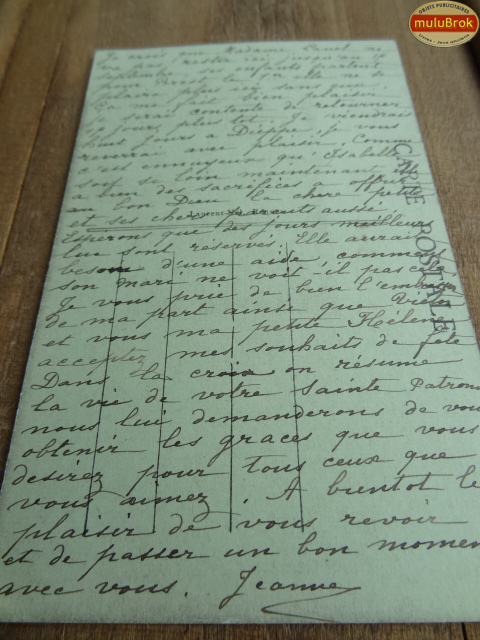 OBJETS PUBLICITAIRES
muluBrok
Je crois que Madame Canel ne
pas rester ici jusqu'au 15
septembre, ses enfants partant
pour qu'elle ne se
plaire plus ici sans eux.
Ça me fait bien plaisir
je serai contente de retourner
15 jours plus tôt. Je viendrais
huit jours à Dieppe, je vous
reverrai avec plaisir. Comme
c'est ennuyeux qu'Isabelle
soit si loin maintenant, elle
a bien des sacrifices à offrir
au bon Dieu la chère petite
et ses chers parents aussi.
Espérons que des jours meilleurs
lui sont réservés. Elle aurait
besoin d'une aide, comment
son mari ne voit-il pas cela.
Je vous prie de bien l'embrasser
de ma part ainsi que
et vous ma petite Hélène
acceptez mes souhaits de fête
Dans la croix on résume
la vie de votre Sainte Patronne
nous lui demanderons de vous
obtenir les graces que vous
desirez pour tous ceux que
vous aimez. A bientot le
plaisir de vous revoir
et de passer un bon moment
avec vous. Jeanne
CARTE POSTALE